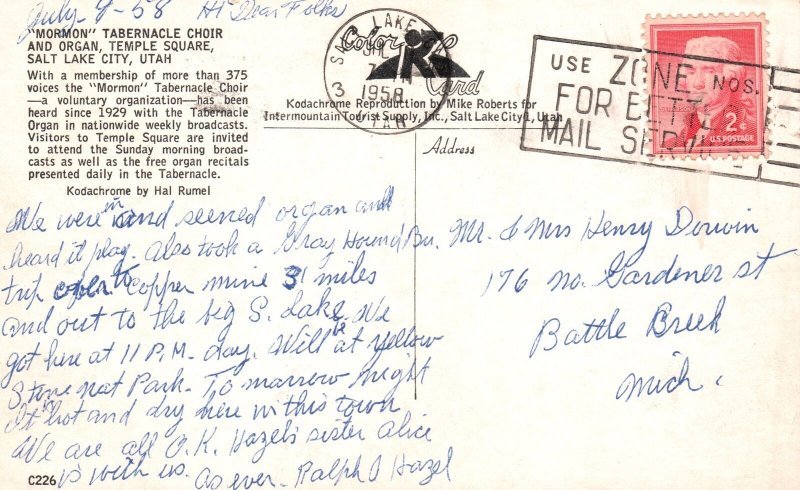 July - 9 - 58 Hi Dear Folks
"MORMON" TABERNACLE CHOIR
AND ORGAN, TEMPLE SQUARE,
SALT LAKE CITY, UTAH
With a membership of more than 375
voices the "Mormon" Tabernacle Choir
—a voluntary organization—has been
heard since 1929 with the Tabernacle
Organ in nationwide weekly broadcasts.
Visitors to Temple Square are invited
to attend the Sunday morning broad-
casts as well as the free organ recitals
presented daily in the Tabernacle.
Kodachrome by Hal Rumel
We were in and seened organ and
heard it play. Also took a Gray Hound Bu.
trip to Copper mine 31 miles
and out to the big S. Lake. We
got here at 11 P.M. day. Will be at yellow
Stone nat Park. To marrow night
It hot and dry here in this town
We are all O.K. Hazel's sister alice
is with us. as ever. Ralph & Hazel
C226
SALT LAKE
1958
3
UTAH
Color Card
Kodachrome Reproduction by Mike Roberts for
Intermountain Tourist Supply, Inc., Salt Lake City 1, Utah
USE ZONE NOS.
FOR BETTER
MAIL SERVICE
2¢
U.S. POSTAGE
Address
Mr. & Mrs Henry Dorwin
176 No. Gardener st
Battle Creek
Mich.